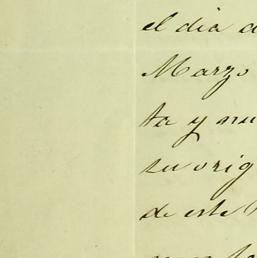 el dia d
Marzo
ta y nu
su orig
de este